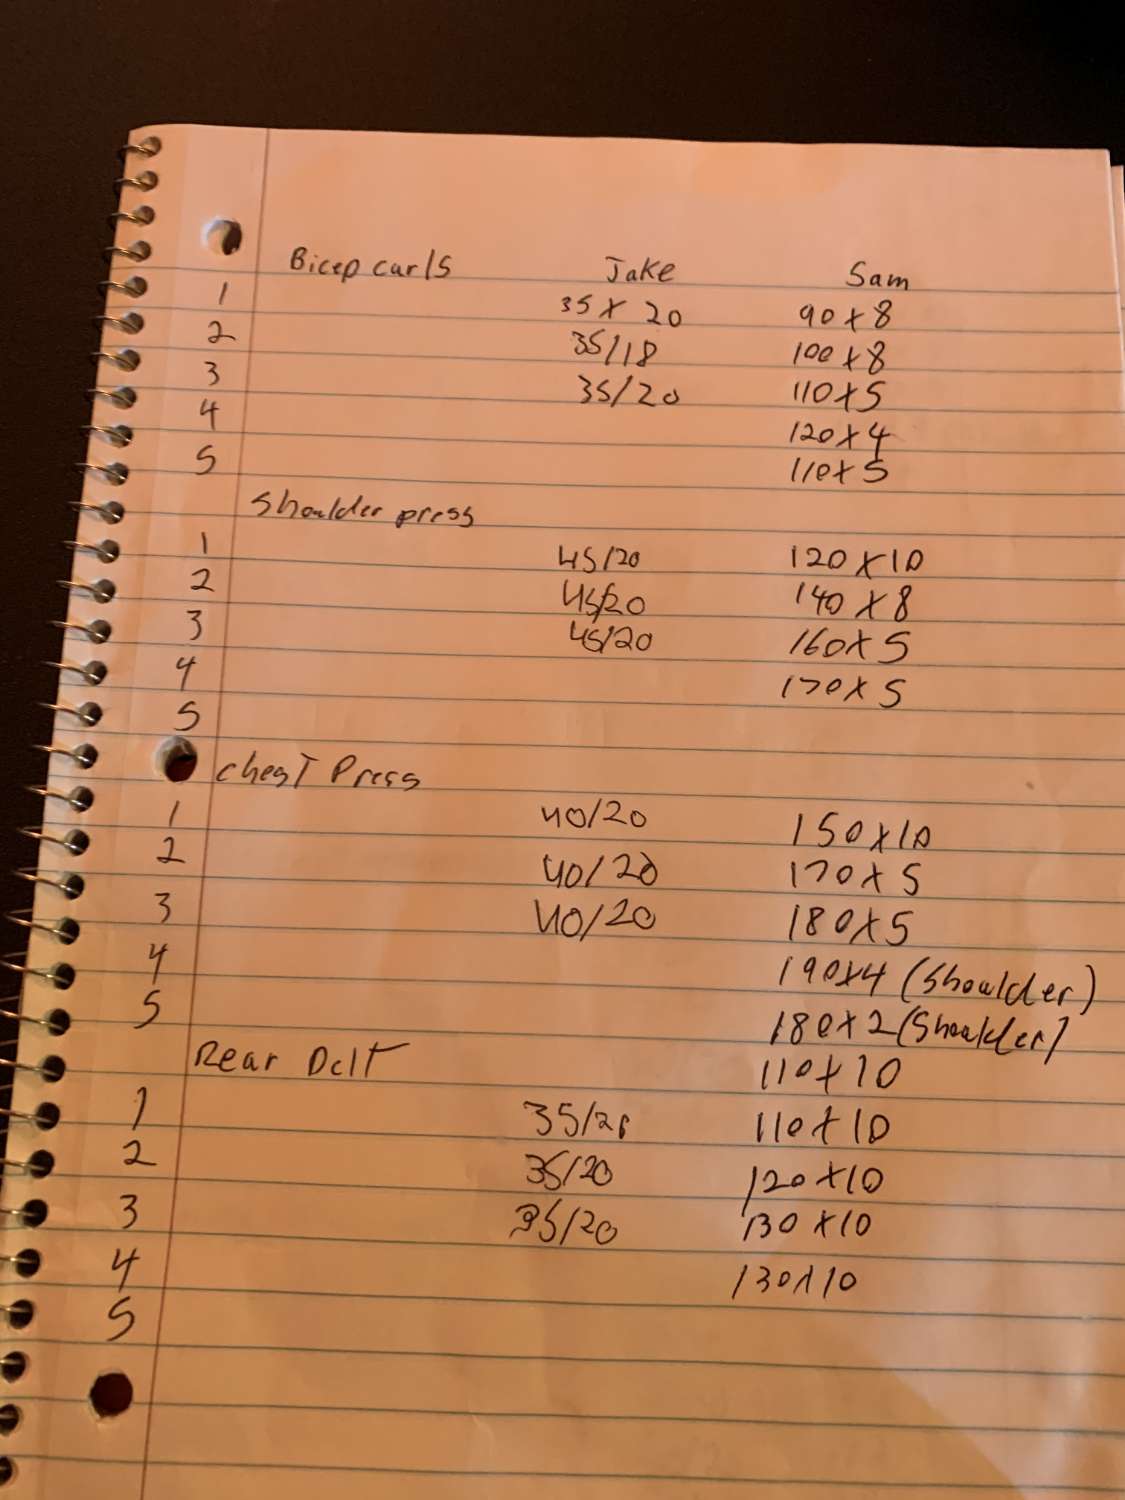 Bicep curls Jake Sam
1 35 x 20 90 x 8
2 35/18 100 x 8
3 35/20 110 x 5
4 120 x 4
5 110 x 5
Shoulder press
1 45/20 120 x 10
2 45/20 140 x 8
3 45/20 160 x 5
4 170 x 5
5
chest Press
1 40/20 150 x 10
2 40/20 170 x 5
3 40/20 180 x 5
4 190 x 4 (Shoulder)
5 180 x 2 (Shoulder)
Rear Delt 110 x 10
1 110 x 10
2 35/20 120 x 10
3 35/20 130 x 10
4 130 x 10
5